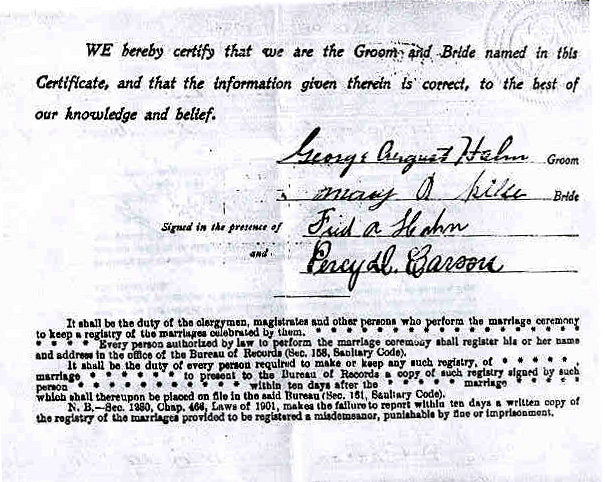 WE hereby certify that we are the Groom and Bride named in this
Certificate, and that the information given therein is correct, to the best of
our knowledge and belief.
George August Hahn Groom
Mary A Bride
Signed in the presence of Fred A Hahn
and Percy D. Carson
It shall be the duty of the clergymen, magistrates and other persons who perform the marriage ceremony
to keep a registry of the marriages celebrated by them. * * * * * * * * * * * * * * *
* * * * Every person authorized by law to perform the marriage ceremony shall register his or her name
and address in the office of the Bureau of Records (Sec. 158, Sanitary Code).
It shall be the duty of every person required to make or keep any such registry, of * * * * *
marriage * * * * * * to present to the Bureau of Records a copy of such registry signed by such
person * * * * * * * * * * within ten days after the * * * * * marriage * * * *
which shall thereupon be placed on file in the said Bureau (Sec. 161, Sanitary Code).
N. B.—Sec. 1280, Chap. 466, Laws of 1901, makes the failure to report within ten days a written copy of
the registry of the marriages provided to be registered a misdemeanor, punishable by fine or imprisonment.